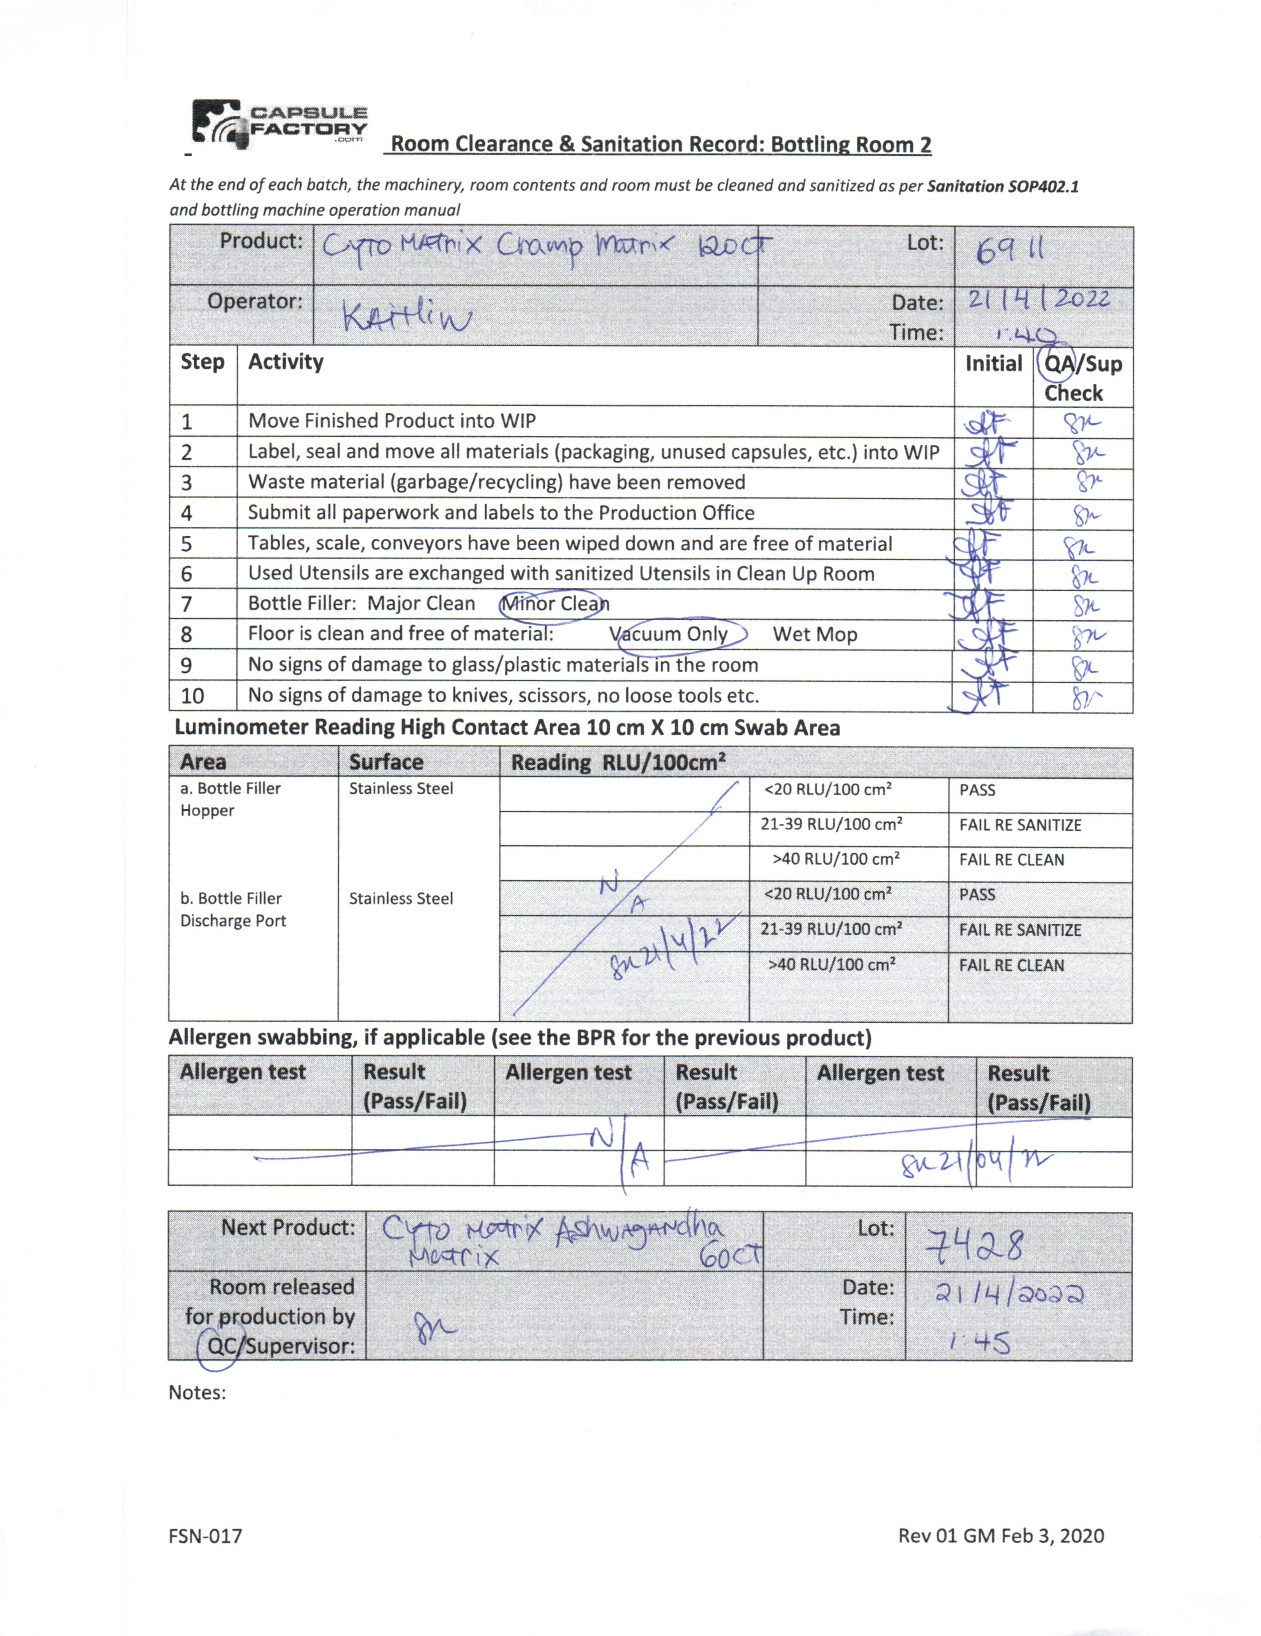 CAPSULE
FACTORY
.com
Room Clearance & Sanitation Record: Bottling Room 2
At the end of each batch, the machinery, room contents and room must be cleaned and sanitized as per Sanitation SOP402.1
and bottling machine operation manual
Product: Cyto MAtrix Cramp Matrix 120CT Lot: 6911
Operator: KAitlin Date: 21/4/2022
Time: 1:40
Step Activity Initial QA/Sup
Check
1 Move Finished Product into WIP
2 Label, seal and move all materials (packaging, unused capsules, etc.) into WIP
3 Waste material (garbage/recycling) have been removed
4 Submit all paperwork and labels to the Production Office
5 Tables, scale, conveyors have been wiped down and are free of material
6 Used Utensils are exchanged with sanitized Utensils in Clean Up Room
7 Bottle Filler: Major Clean Minor Clean
8 Floor is clean and free of material: Vacuum Only Wet Mop
9 No signs of damage to glass/plastic materials in the room
10 No signs of damage to knives, scissors, no loose tools etc.
Luminometer Reading High Contact Area 10 cm X 10 cm Swab Area
Area Surface Reading RLU/100cm²
a. Bottle Filler Stainless Steel <20 RLU/100 cm² PASS
Hopper
21-39 RLU/100 cm² FAIL RE SANITIZE
>40 RLU/100 cm² FAIL RE CLEAN
N/A
b. Bottle Filler Stainless Steel <20 RLU/100 cm² PASS
Discharge Port
21-39 RLU/100 cm² FAIL RE SANITIZE
21/4/22
>40 RLU/100 cm² FAIL RE CLEAN
Allergen swabbing, if applicable (see the BPR for the previous product)
Allergen test Result Allergen test Result Allergen test Result
(Pass/Fail) (Pass/Fail) (Pass/Fail)
N/A
21/04/22
Next Product: Cyto Matrix AShwAgANdha Lot: 7428
Matrix 60CT
Room released Date: 21/4/2022
for production by Time:
QC/Supervisor: 1:45
Notes:
FSN-017 Rev 01 GM Feb 3, 2020